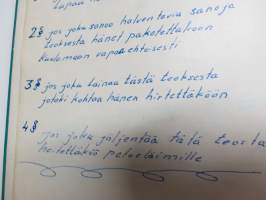 lupaa h
2§ jos joku sanoo halventavia sanoja
teoksesta hänet pakotettakoon
kuolemaan vapaaehtoisesti
3§ jos joku lainaa tästä teoksesta
jotaki kohtaa hänen hirtettäköön
4§
jos joku jäljentää tätä teosta
heitettäkö petoeläimille